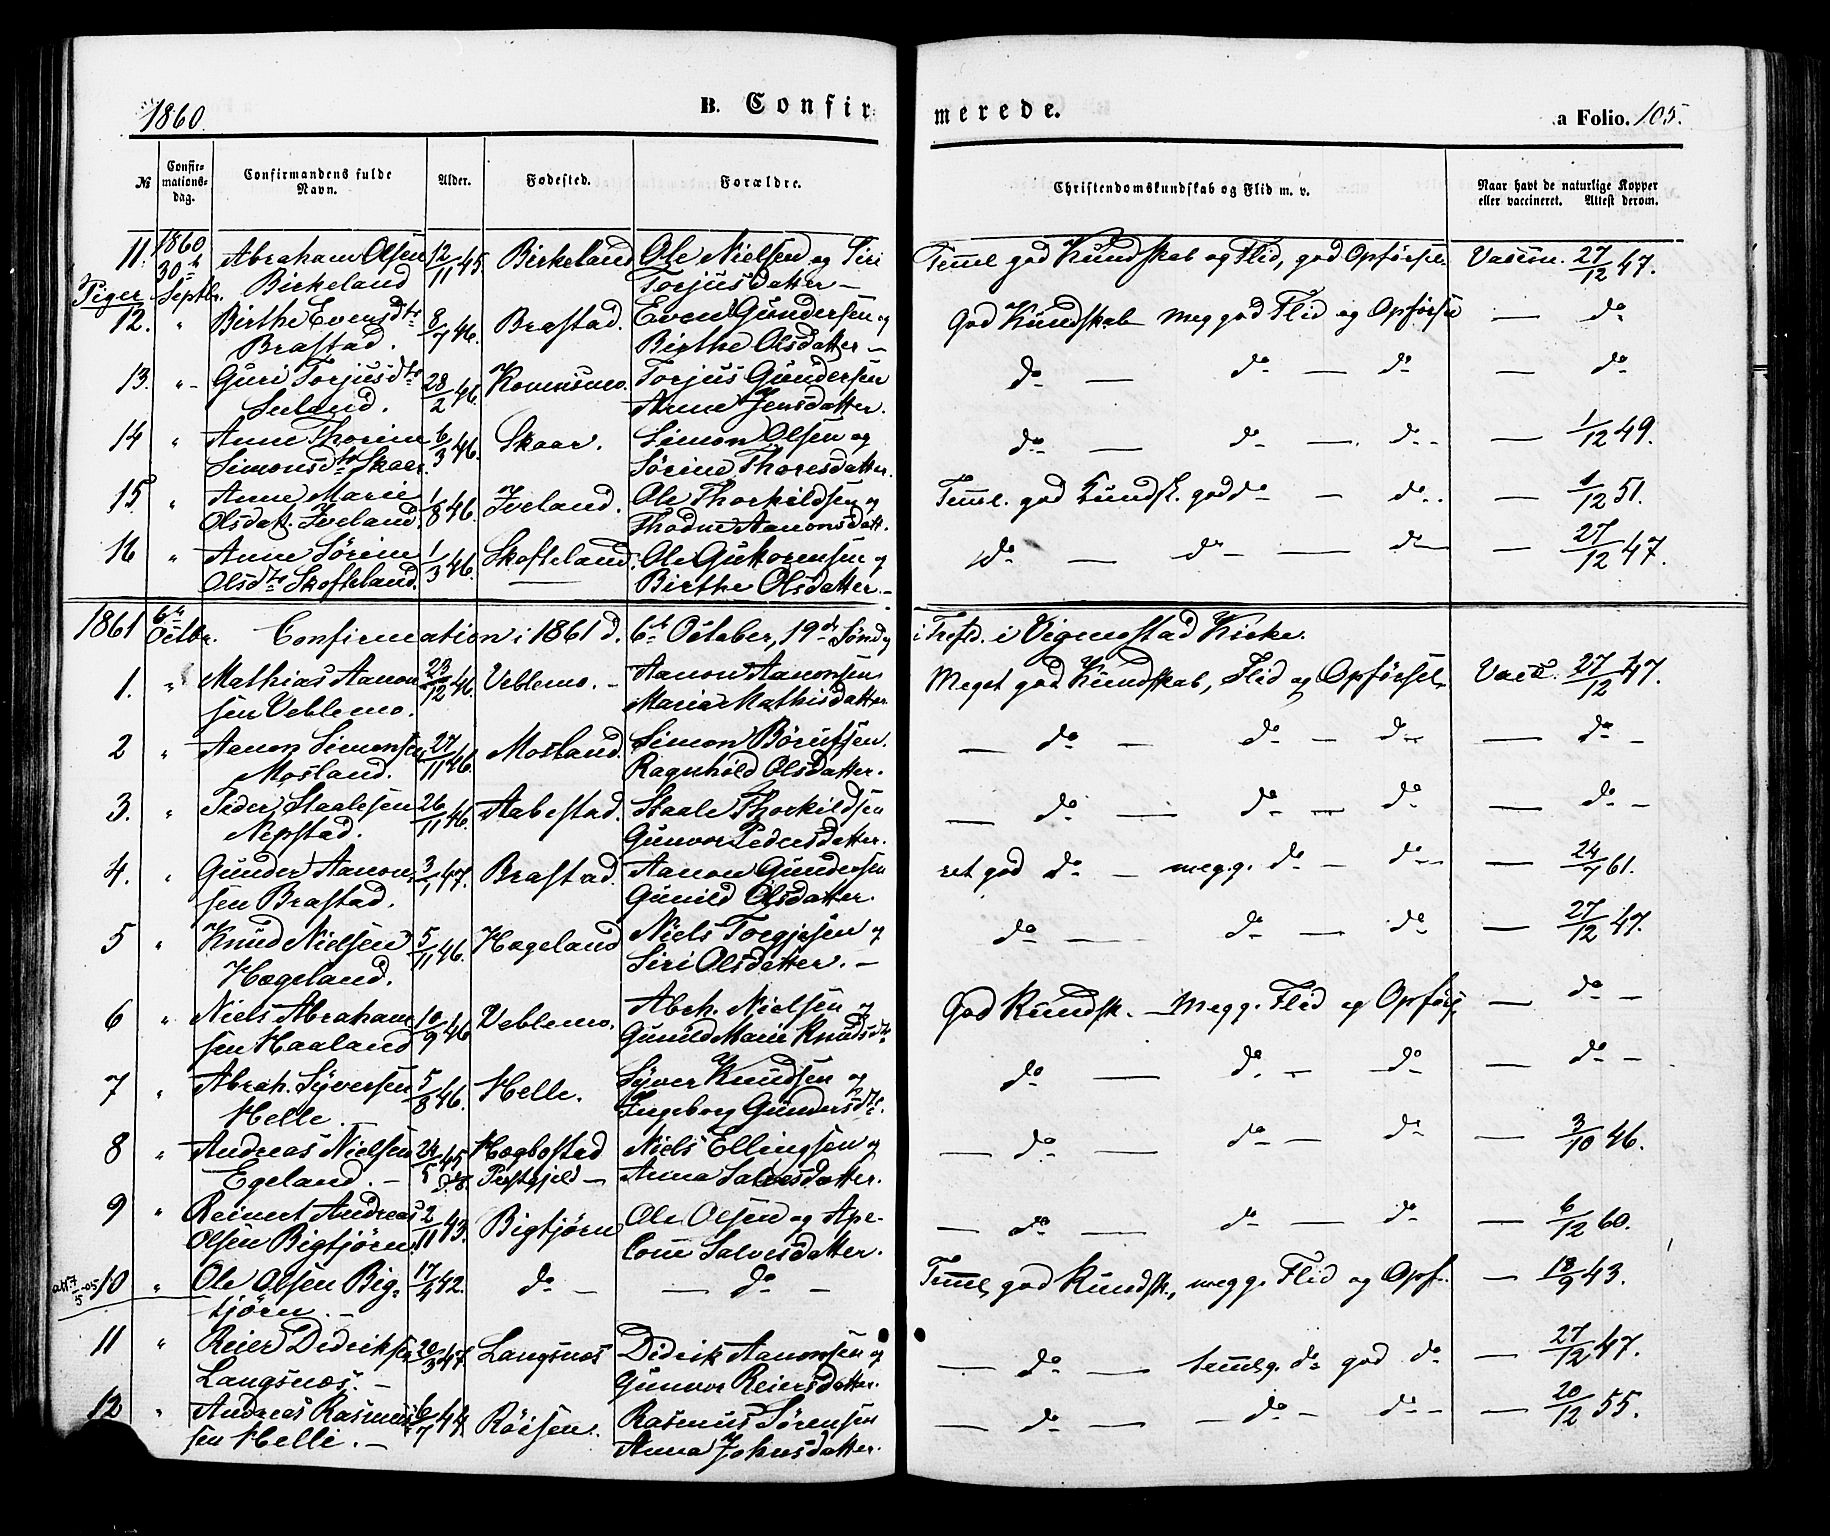 1860.
B. Confir
merede.
a Folio. 105.
№
Confir-
mations-
dag.
Confirmandens fulde
Navn.
Alder.
Fødested.
Forældre.
Christendomskundskab og Flid m. v.
Naar havt de naturlige Kopper
eller vaccineret. Attest derom.
11. 1860 Abraham Olsen 12/11 45. Birkeland Ole Nielsen og Siri Temel god Kundskab og Flid, god Opførsel Vaccin. 27/12 47.
30te Septbr. Birkeland Torjusdatter –
Piger
12. " Birthe Evensdtr 8/7 46. Brastad. Even Gundersen og God Kundskab meg god Flid og Opførsel — do
Brastad. Birthe Olsdatter –
13. " Guri Torjusdtr 28/2 46. Konsmo. Torjus Gundersen do — do — do — do
Seeland. Anne Jensdatter.
14 " Anne Thorine 6/3 46. Skaar. Simon Olsen og do — do — do — 1/12 49.
Simonsdtr Skaar. Sørine Thoresdatter.
15 " Anne Marie 1/8 46. Iveland. Ole Thorkildsen og Temel. god Kundsk. god do — do — /12 51.
Olsdatt. Iveland Aanonsdatt.
16 " Anne Sørine 1/3 46. Skofteland. Ole Guttormsen og do — do — do — 27/12 47.
Olsdtr Skofteland. Birthe Olsdatter. –
1861 6te Octbr. Confirmation i 1861 d. 6te October, 19de Sønd. i Trefd. i Vigmostad Kirke.
1. " Mathias Aanon 23/12 46. Veblemo. – Aanon Aanonsen Meget god Kundskab, Flid og Opførsel. Vacc. 27/12 47.
sen Veblemo. Maria Mathisdatter
2 " Aanon Simonsen 27/11 46. Mosland. Simon Börufsen. — do — do — do — do –
Mosland. Ragnhild Olsdatter.
3. " Peder Staalesen 26/11 46. Aabestad. Staale Thorkildsen — do — do — do — do –
Nepstad. Gunvor Pedersdatter.
4. " Gunder Aanon 3/1 47. Brastad. Aanon Gundersen ret god do — meg.g. do — do — 24/7 61.
sen Brastad. Gunild Olsdatter.
5 " Knud Nielsen 5/11 46. Hægeland Niels Torgjesen og do — do — do — 27/12 47.
Hægeland. Siri Olsdatter. –
6 " Niels Abraham 10/9 46 Veblemo. Abrh. Nielsen og God Kundsk. — Meg g. Flid og Opførs. — do –
sen Haaland Gunild Marie Knudsdtr
7 " Abrah. Syversen 5/8 46. Helle. Syver Knudsen og do — do — do — do –
Helle. Ingeborg Gundersdtr.
8 " Andreas Nielsen 24/5 45 Hægbostad Niels Ellingsen og — do — do — do — 3/10 46.
Egeland. – Præstegjeld – Anna Salvesdatter.
9 " Reinert Andreas 2/11 43. Bigtjørn Ole Olsen og Ape- — do — do — do — 6/12 60.
Olsen Bigtjørn. lone Salvesdatter.
10 " Ole Olsen Big- 17/4 42. do – — do – Temel god Kundsk., meg g. Flid og Opf. — 18/9 43.
tjørn. –
11 " Reier Didriksen 20/3 47. Langsnæs Didrik Aanonsen og — do — temelg. do god do — 27/12 47.
Langsnæs. – Gunvor Reiersdatter.
12 " Andreas Rasmus 6/7 44 Röisen. Rasmus Sørensen — do — do — do — 20/12 55.
sen Helli. – Anna Johnsdatter.